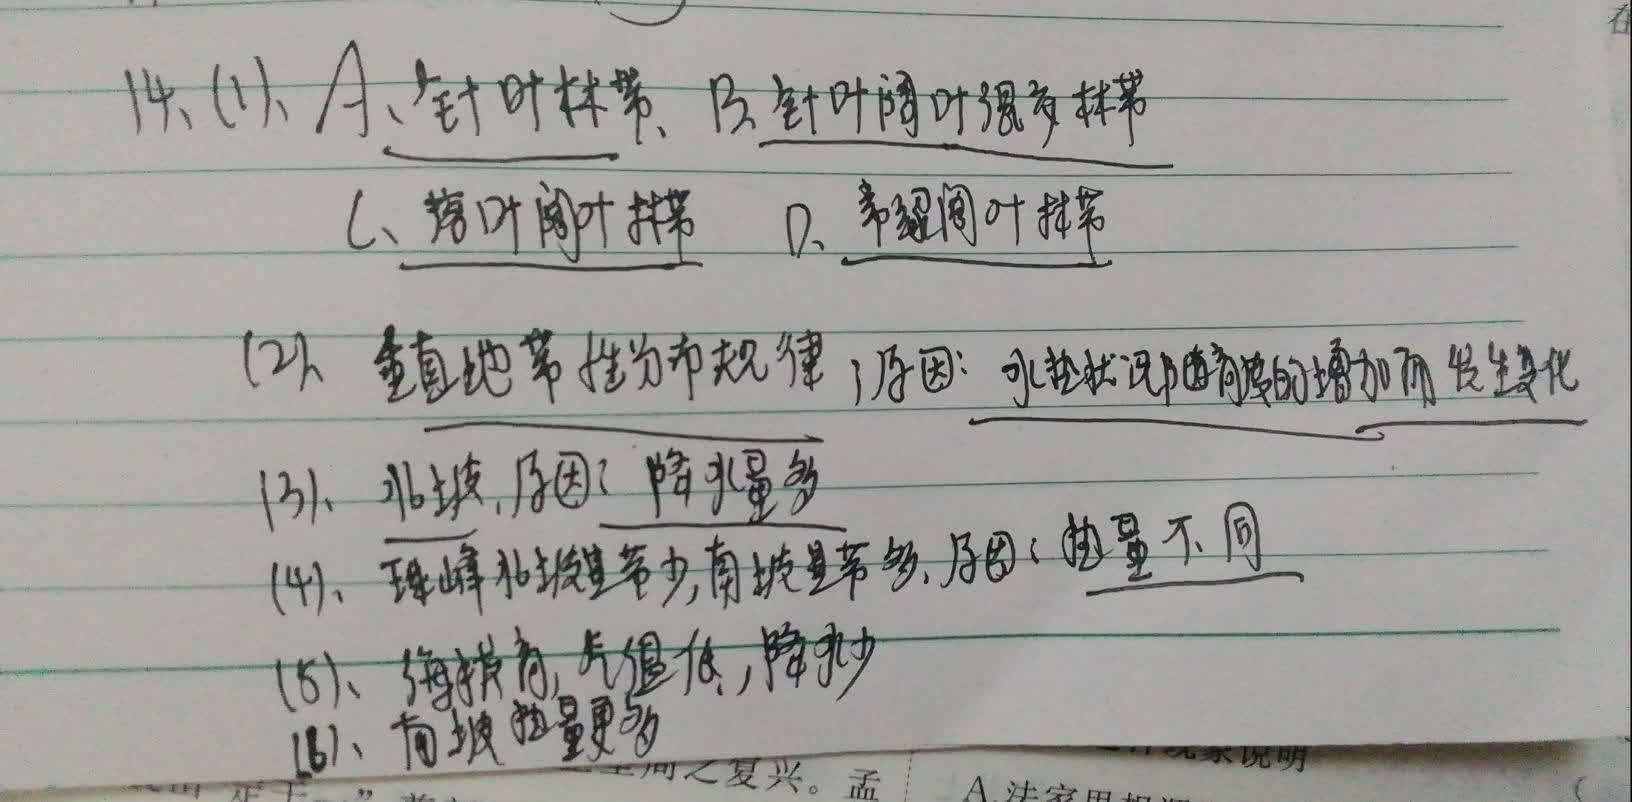 14、(1)、A、针叶林带、B、针叶阔叶混交林带
C、落叶阔叶林带 D、常绿阔叶林带
(2)、垂直地带性分布规律；原因：水热状况随高度的增加而发生变化
(3)、北坡,原因：降水量多
(4)、珠峰北坡基带少,南坡基带多、原因：热量不同
(5)、海拔高,气温低,降水少
(6)、南坡热量更多
之复兴。孟
A.法家思想